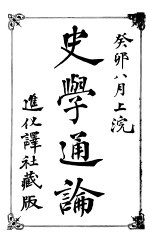 癸卯八月上浣
史學通論
進化譯社藏版